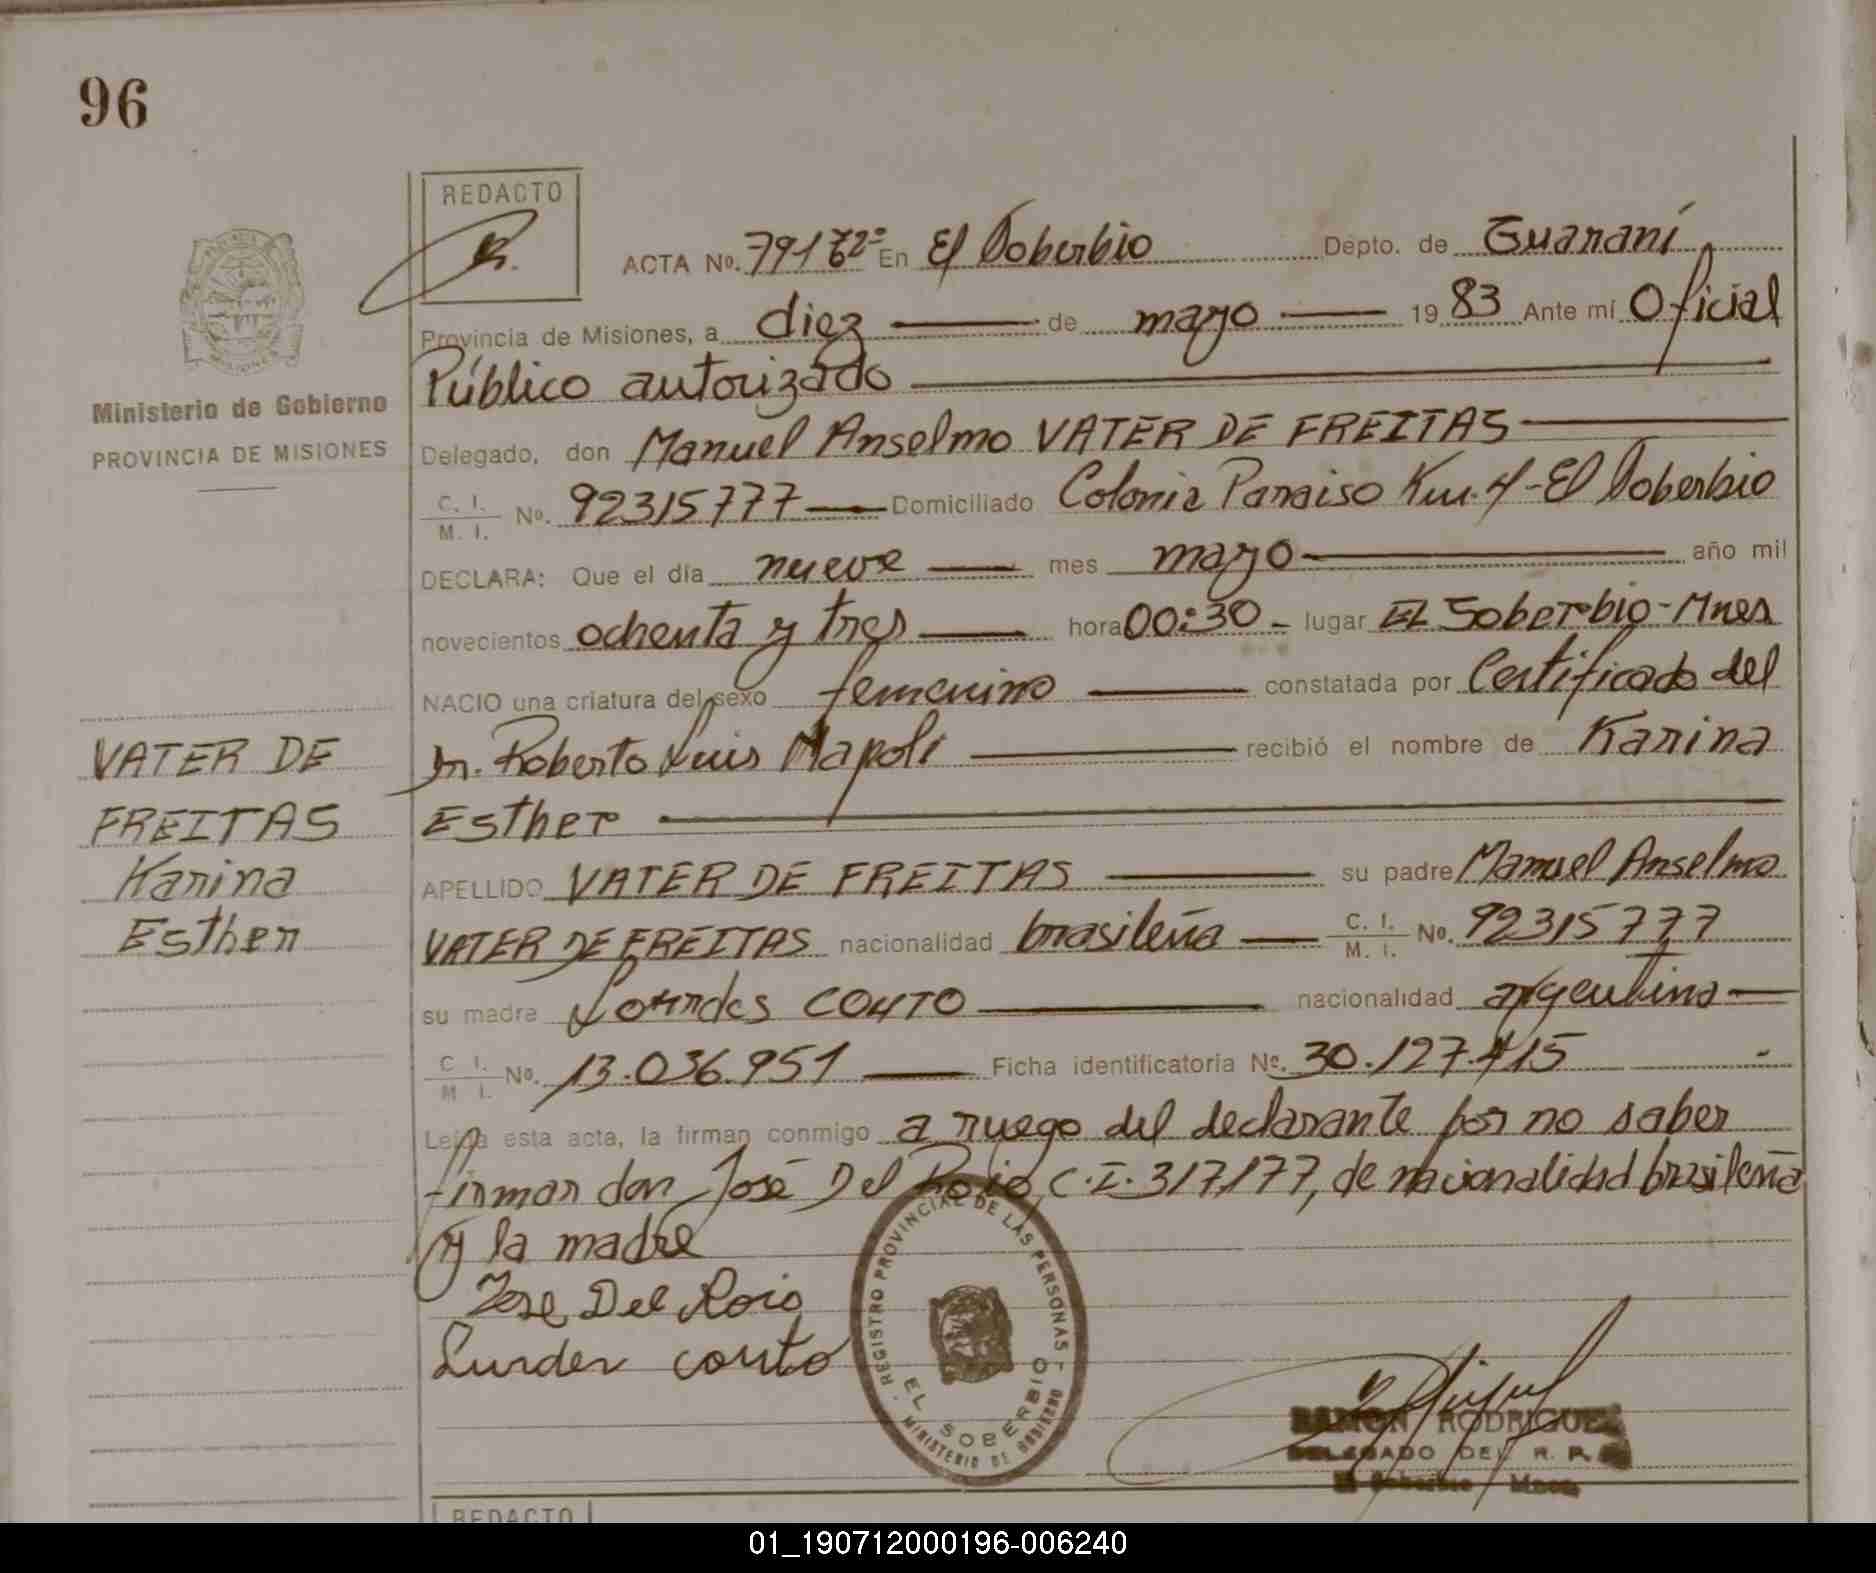 96
REDACTO
ACTA No. 791 Tº 2º En El Soberbio Depto. de Guaraní
Provincia de Misiones, a diez de mayo 1983 Ante mí Oficial
Público autorizado
Ministerio de Gobierno
PROVINCIA DE MISIONES
Delegado, don Manuel Anselmo VATER DE FREITAS
C. I. M. I. No. 92315777 Domiciliado Colonia Paraiso Km. 4 - El Soberbio
DECLARA: Que el día nueve mes mayo año mil
novecientos ochenta y tres hora 00:30 - lugar EL Soberbio - Mnes
NACIO una criatura del sexo femenino constatada por Certificado del
Dr. Roberto Luis Napoli recibió el nombre de Karina
Esther
VATER DE
FREITAS
Karina
Esther
APELLIDO VATER DE FREITAS su padre Manuel Anselmo
VATER DE FREITAS nacionalidad brasileña C. I. M. I. No. 92315777
su madre Lourdes COUTO nacionalidad argentina
C. I. M. I. No. 13.036.951 Ficha identificatoria No. 30.127.415
Leída esta acta, la firman conmigo a ruego del declarante por no saber
firmar don José Del Roio, C.I. 317177, de nacionalidad brasileña
y la madre
Jose Del Roio
Lurder couto
REGISTRO PROVINCIAL DE LAS PERSONAS
EL SOBERBIO
MINISTERIO DE GOBIERNO
RAMON RODRIGUEZ
DELEGADO DEL R. P.
El Soberbio Mnes
REDACTO
01_190712000196-006240